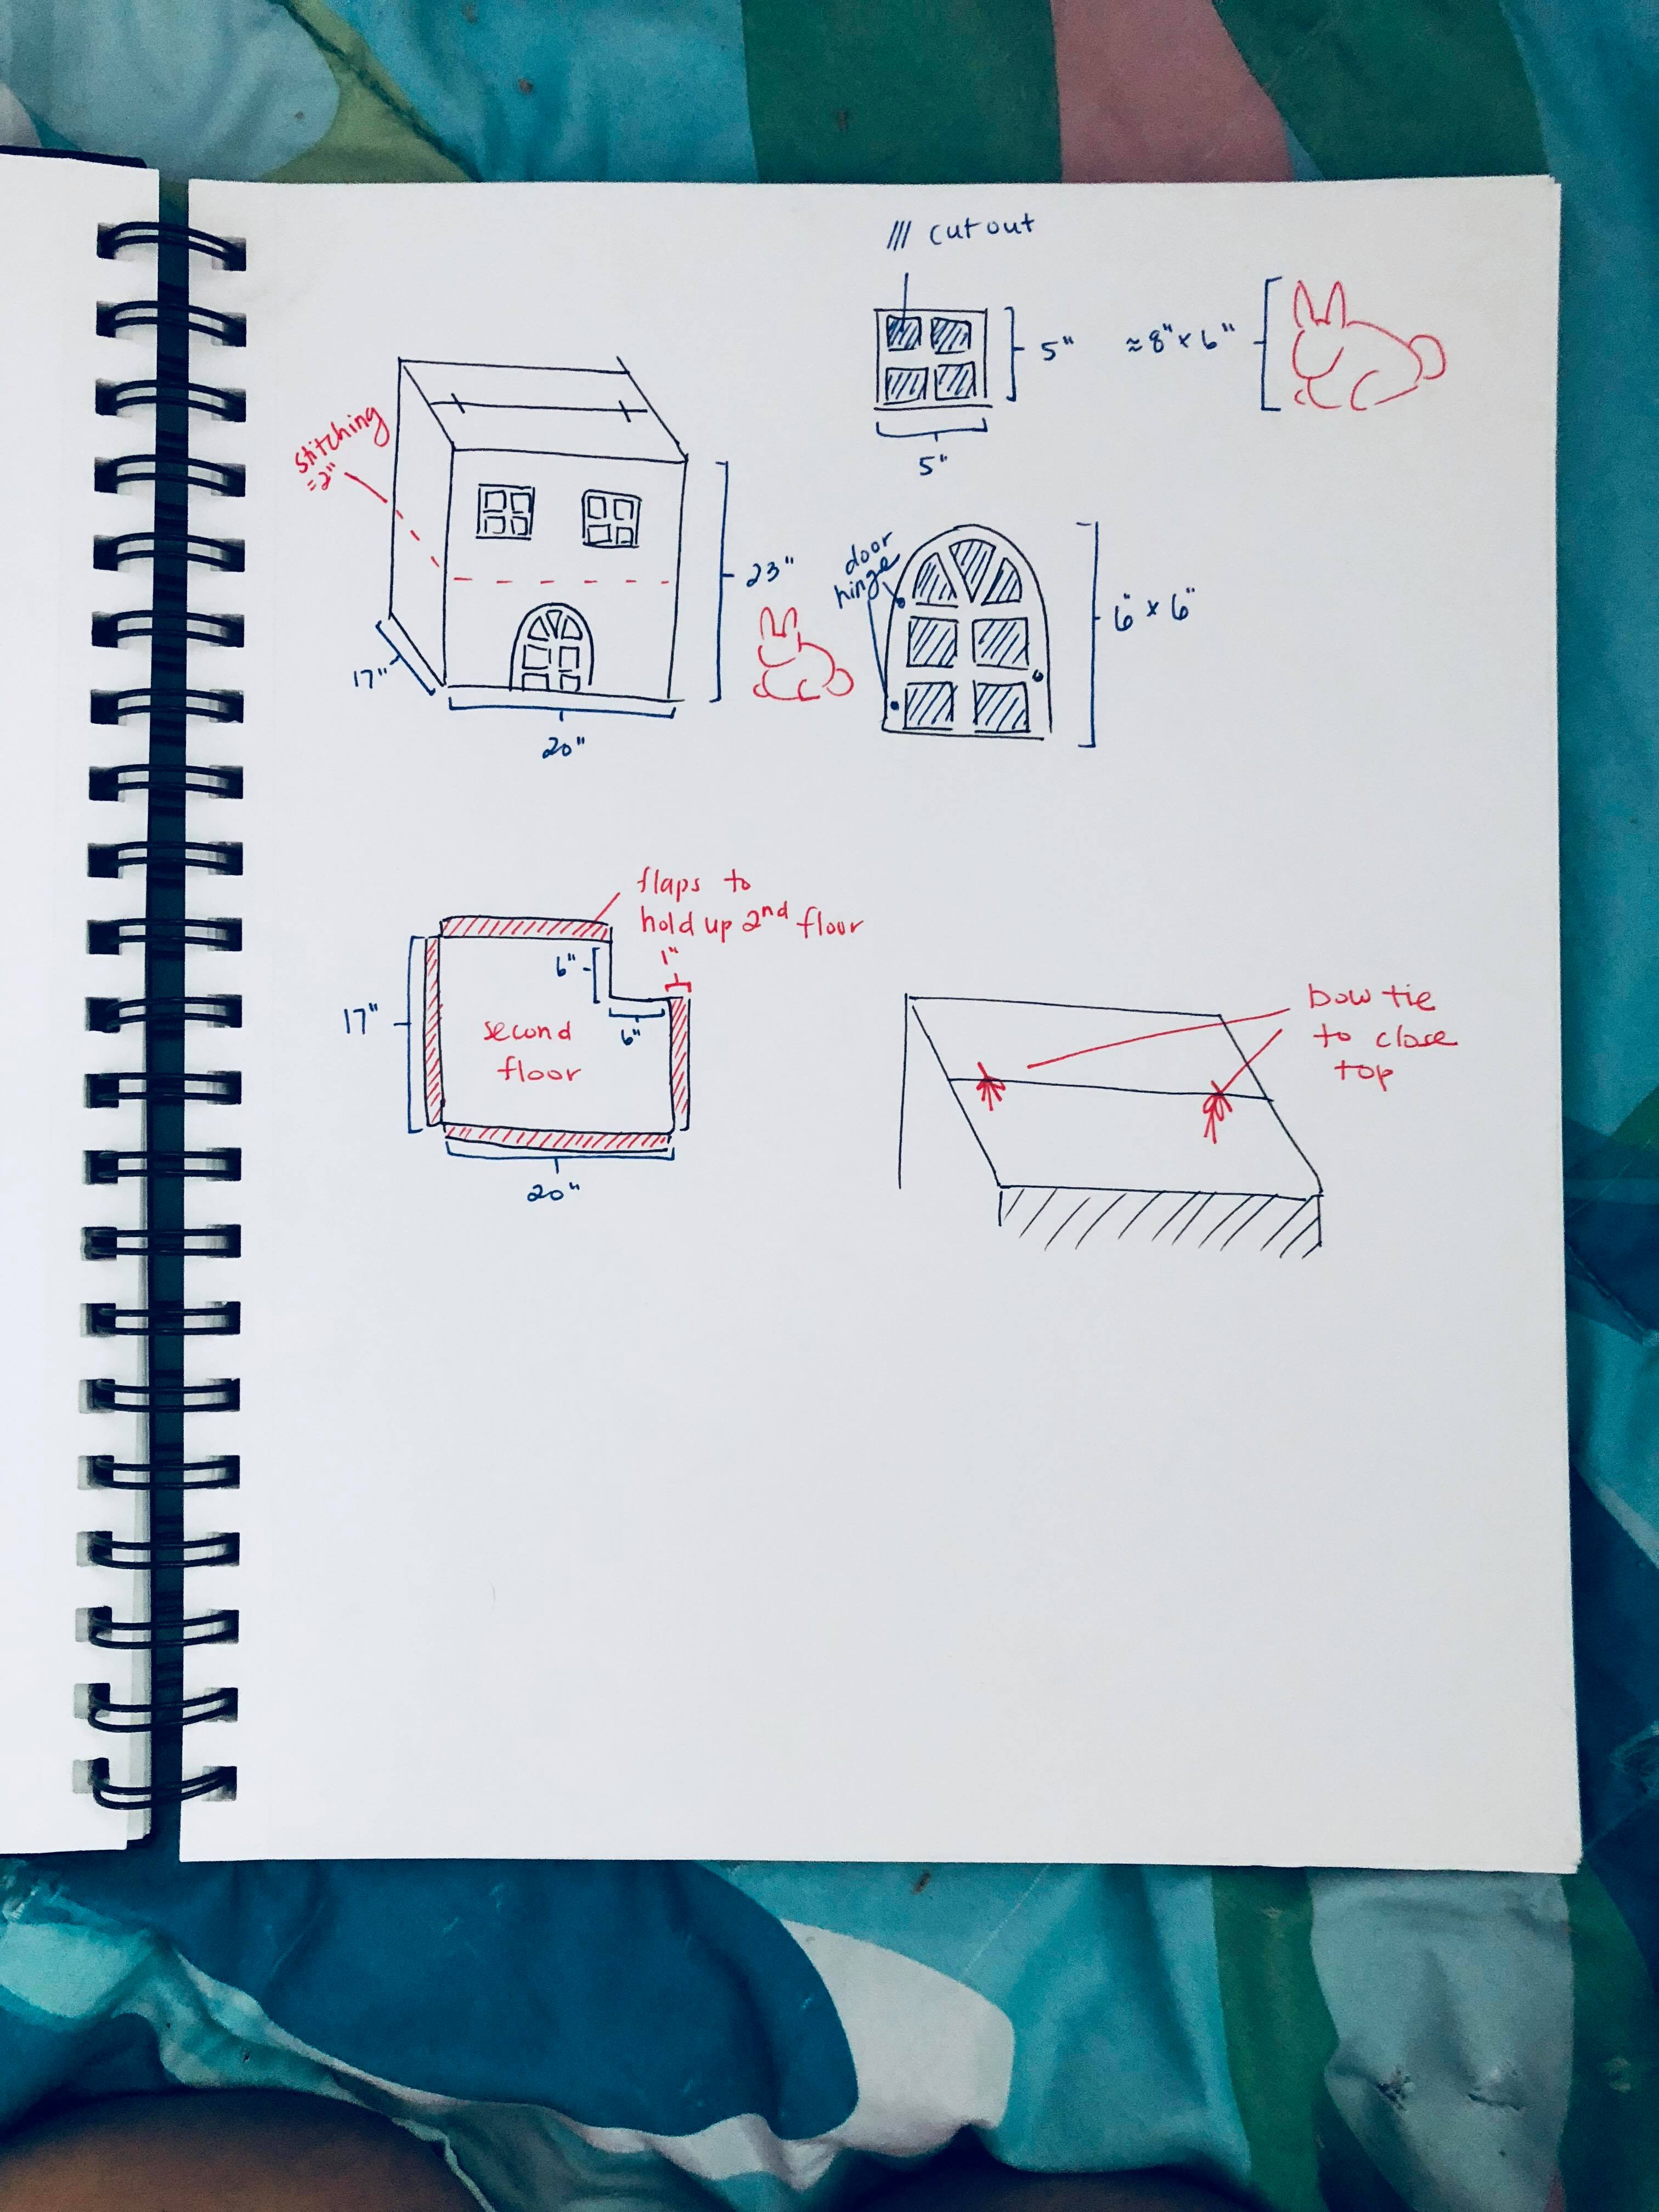 /// cut out
5"
≈8" x 6"
5"
stitching
=2"
23"
17"
20"
door
hinge
6" x 6"
flaps to
hold up 2nd floor
6"
1"
17"
6"
second
floor
20"
bow tie
to close
top